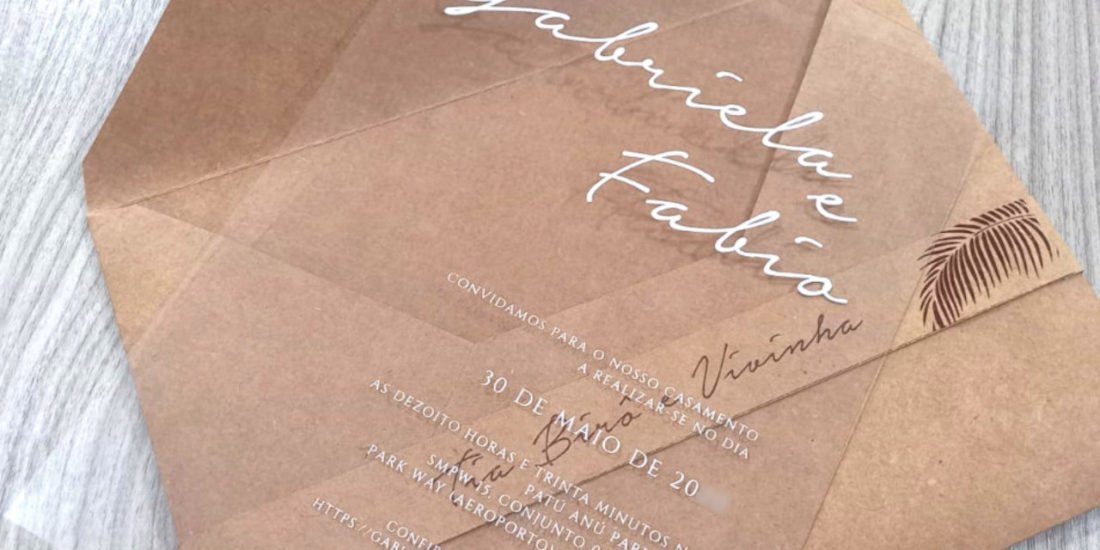 Gabriela e
Fabio
CONVIDAMOS PARA O NOSSO CASAMENTO
A REALIZAR-SE NO DIA
30 DE MAIO DE 20
AS DEZOITO HORAS E TRINTA MINUTOS N
PATÚ ANÚ PAR
SMPW 15, CONJUNTO
PARK WAY (AEROPORTO)
CONFI
HTTPS://GAB
Tia Birô e Vivinha